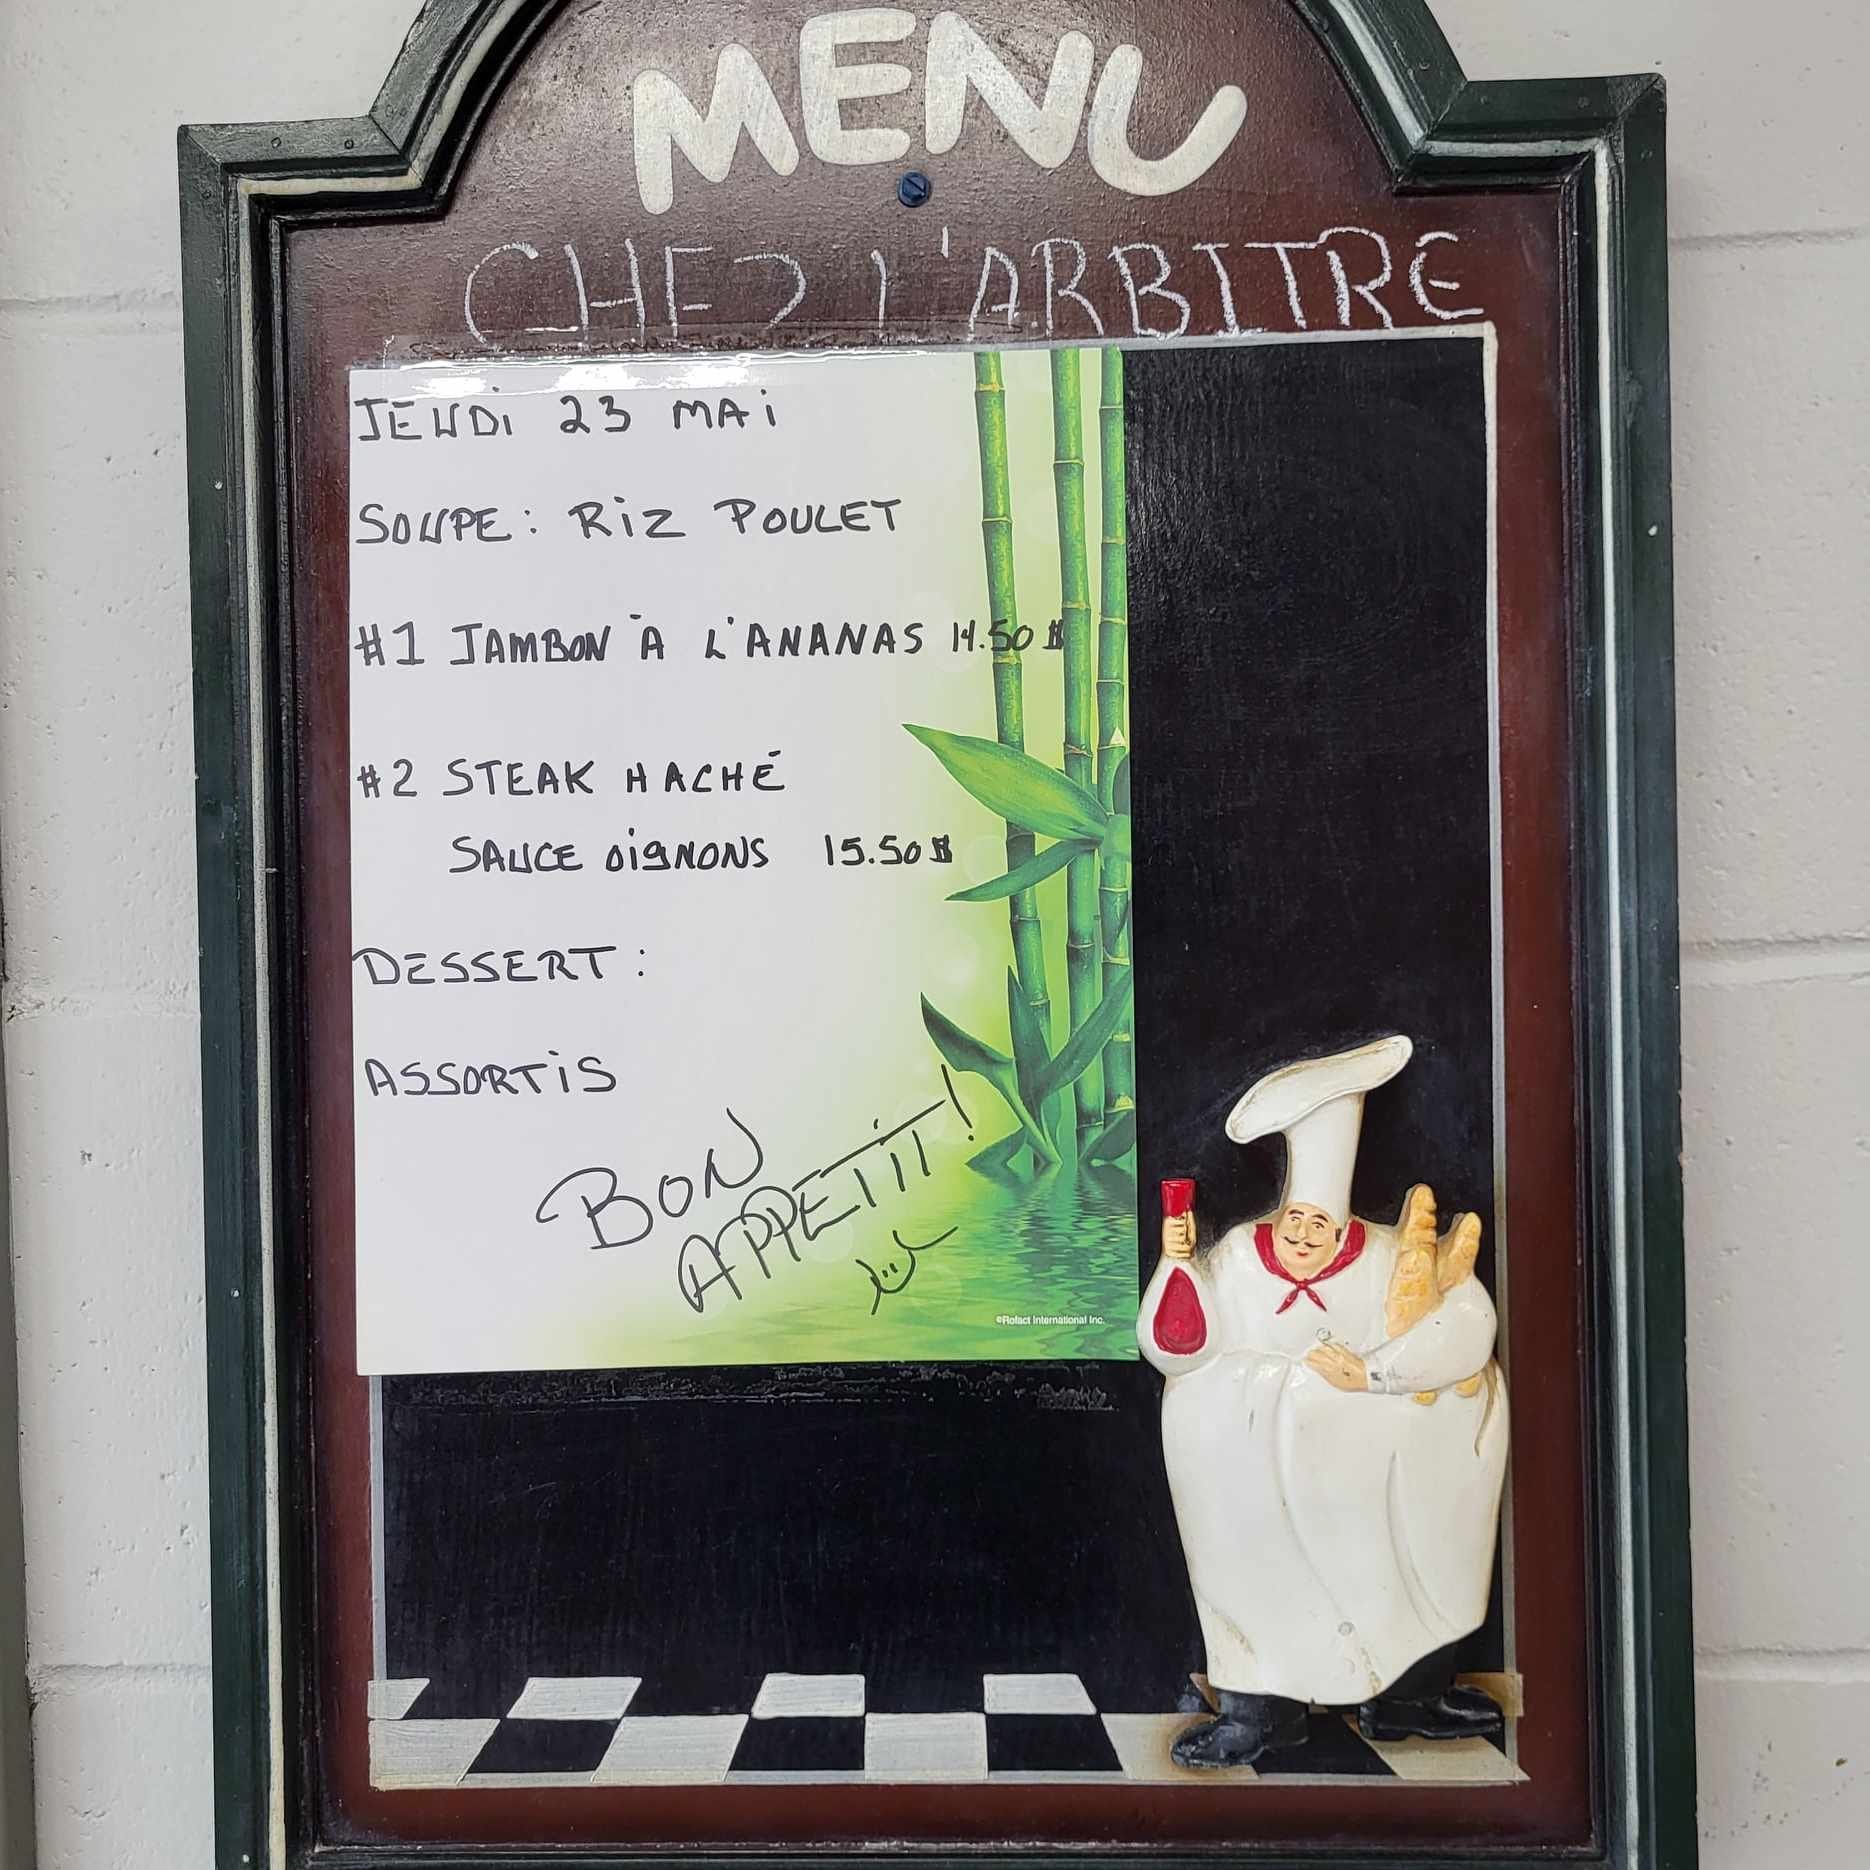 MENU
CHEZ L'ARBITRE
JEUDI 23 MAI
SOUPE: RIZ POULET
#1 JAMBON À L'ANANAS 14.50$
#2 STEAK HACHÉ
SAUCE OIGNONS 15.50$
DESSERT:
ASSORTIS
BON
APPETIT!
©Rofact International Inc.